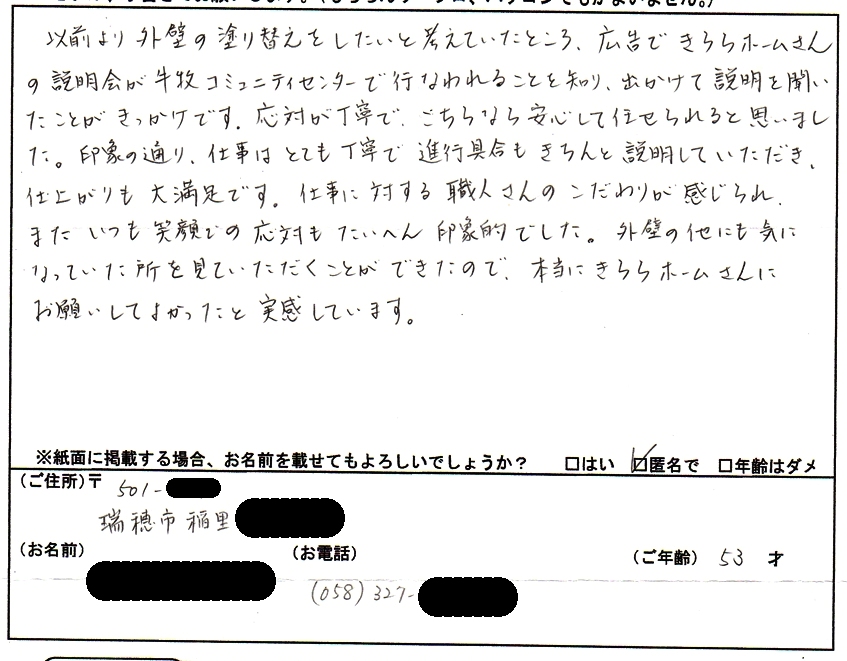 以前より外壁の塗り替えをしたいと考えていたところ、広告できららホームさん
の説明会が牛牧コミュニティセンターで行なわれることを知り、出かけて説明を聞い
たことがきっかけです。応対が丁寧で、こちらなら安心して任せられると思いまし
た。印象の通り、仕事はとても丁寧で進行具合もきちんと説明していただき、
仕上がりも大満足です。仕事に対する職人さんのこだわりが感じられ、
またいつも笑顔での応対もたいへん印象的でした。外壁の他にも気に
なっていた所を見ていただくことができたので、本当にきららホームさんに
お願いしてよかったと実感しています。
※紙面に掲載する場合、お名前を載せてもよろしいでしょうか? □はい ☑匿名で □年齢はダメ
(ご住所)〒 501-
瑞穂市稲里
(お名前) (お電話) (ご年齢) 53 才
(058) 327-